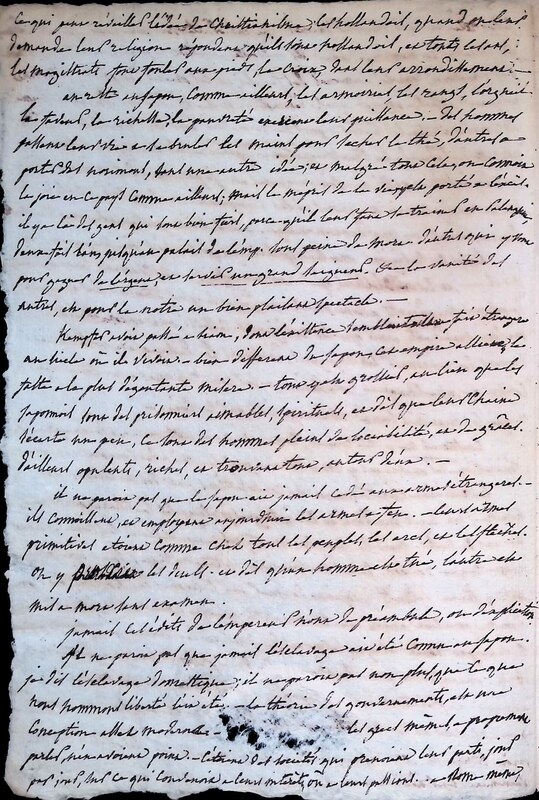 ce qui peut réveiller l'idée de Christianisme; les hollandois, quand on leur
demande leur religion répondent qu'ils sont hollandois, et tous les ans,
les magistrats font fouler aux pieds, la croix, dans leurs arrondissemens. —
au reste au Japon, comme ailleurs, les armoiries les rangs, l'orgueil
la faveur, la richesse, la pauvreté exercent leur puissance. — des hommes
passent leur vie a se bruler les mains pour secher le thé, d'autres a
porter des norimons, dans une autre idée; et malgré tout cela, on connoit
la joie en ce pays comme ailleurs, mais le mépris de la vie y est porté a l'excès.
il y a là des gens qui sont bien fiers, parce qu'il leur faut se trainer en palanquin,
jusqu'au palais de l'emp. sous peine de mort d'autres qui y sont
pour gages de et servir un grand seigneur. la vanité des
autres, est pour la notre un bien plaisant spectacle. —
Kempfer avoit passé a Siam, dont l'existence sembloit être étrangere
au siecle où il vivoit. — bien different du Japon, cet empire allioit, le
faste a la plus dégoutante misere. — tout y est grossier, au lieu que les
japonois sont des prisonniers aimables, spirituels, et dès que leur chaine
s'écarte un peu, ce sont des hommes pleins de sociabilité, et de grâces.
d'ailleurs opulents, riches, et trouvant tout, autour d'eux. —
il ne paroit pas que le Japon ait jamais cédé aux armes étrangeres. —
ils connoissent, et employent aujourdhui les armes a feu. — leurs armes
primitives etoient comme chez tous les peuples, les arcs, et les fleches.
On y les duels. et dès qu'un homme est tué, l'autre est
mis a mort sans examen.
jamais les édits de l'empereur n'ont de préambule, ou d'explication
Il ne paroit pas que jamais l'esclavage ait été connu au Japon.
je dis l'esclavage domestique; il ne paroit pas non plus, que ce que
nous nommons liberté l'ait été; — la théorie des gouvernements, est une
conception assez moderne. — les grecs mêmes a proprement
parler n'en avoient point. — c'etoient des sociétés qui prenoient leur parti, jour
par jour, sur ce qui convenoit a leurs interêts, ou a leurs passions. — a Rome même,